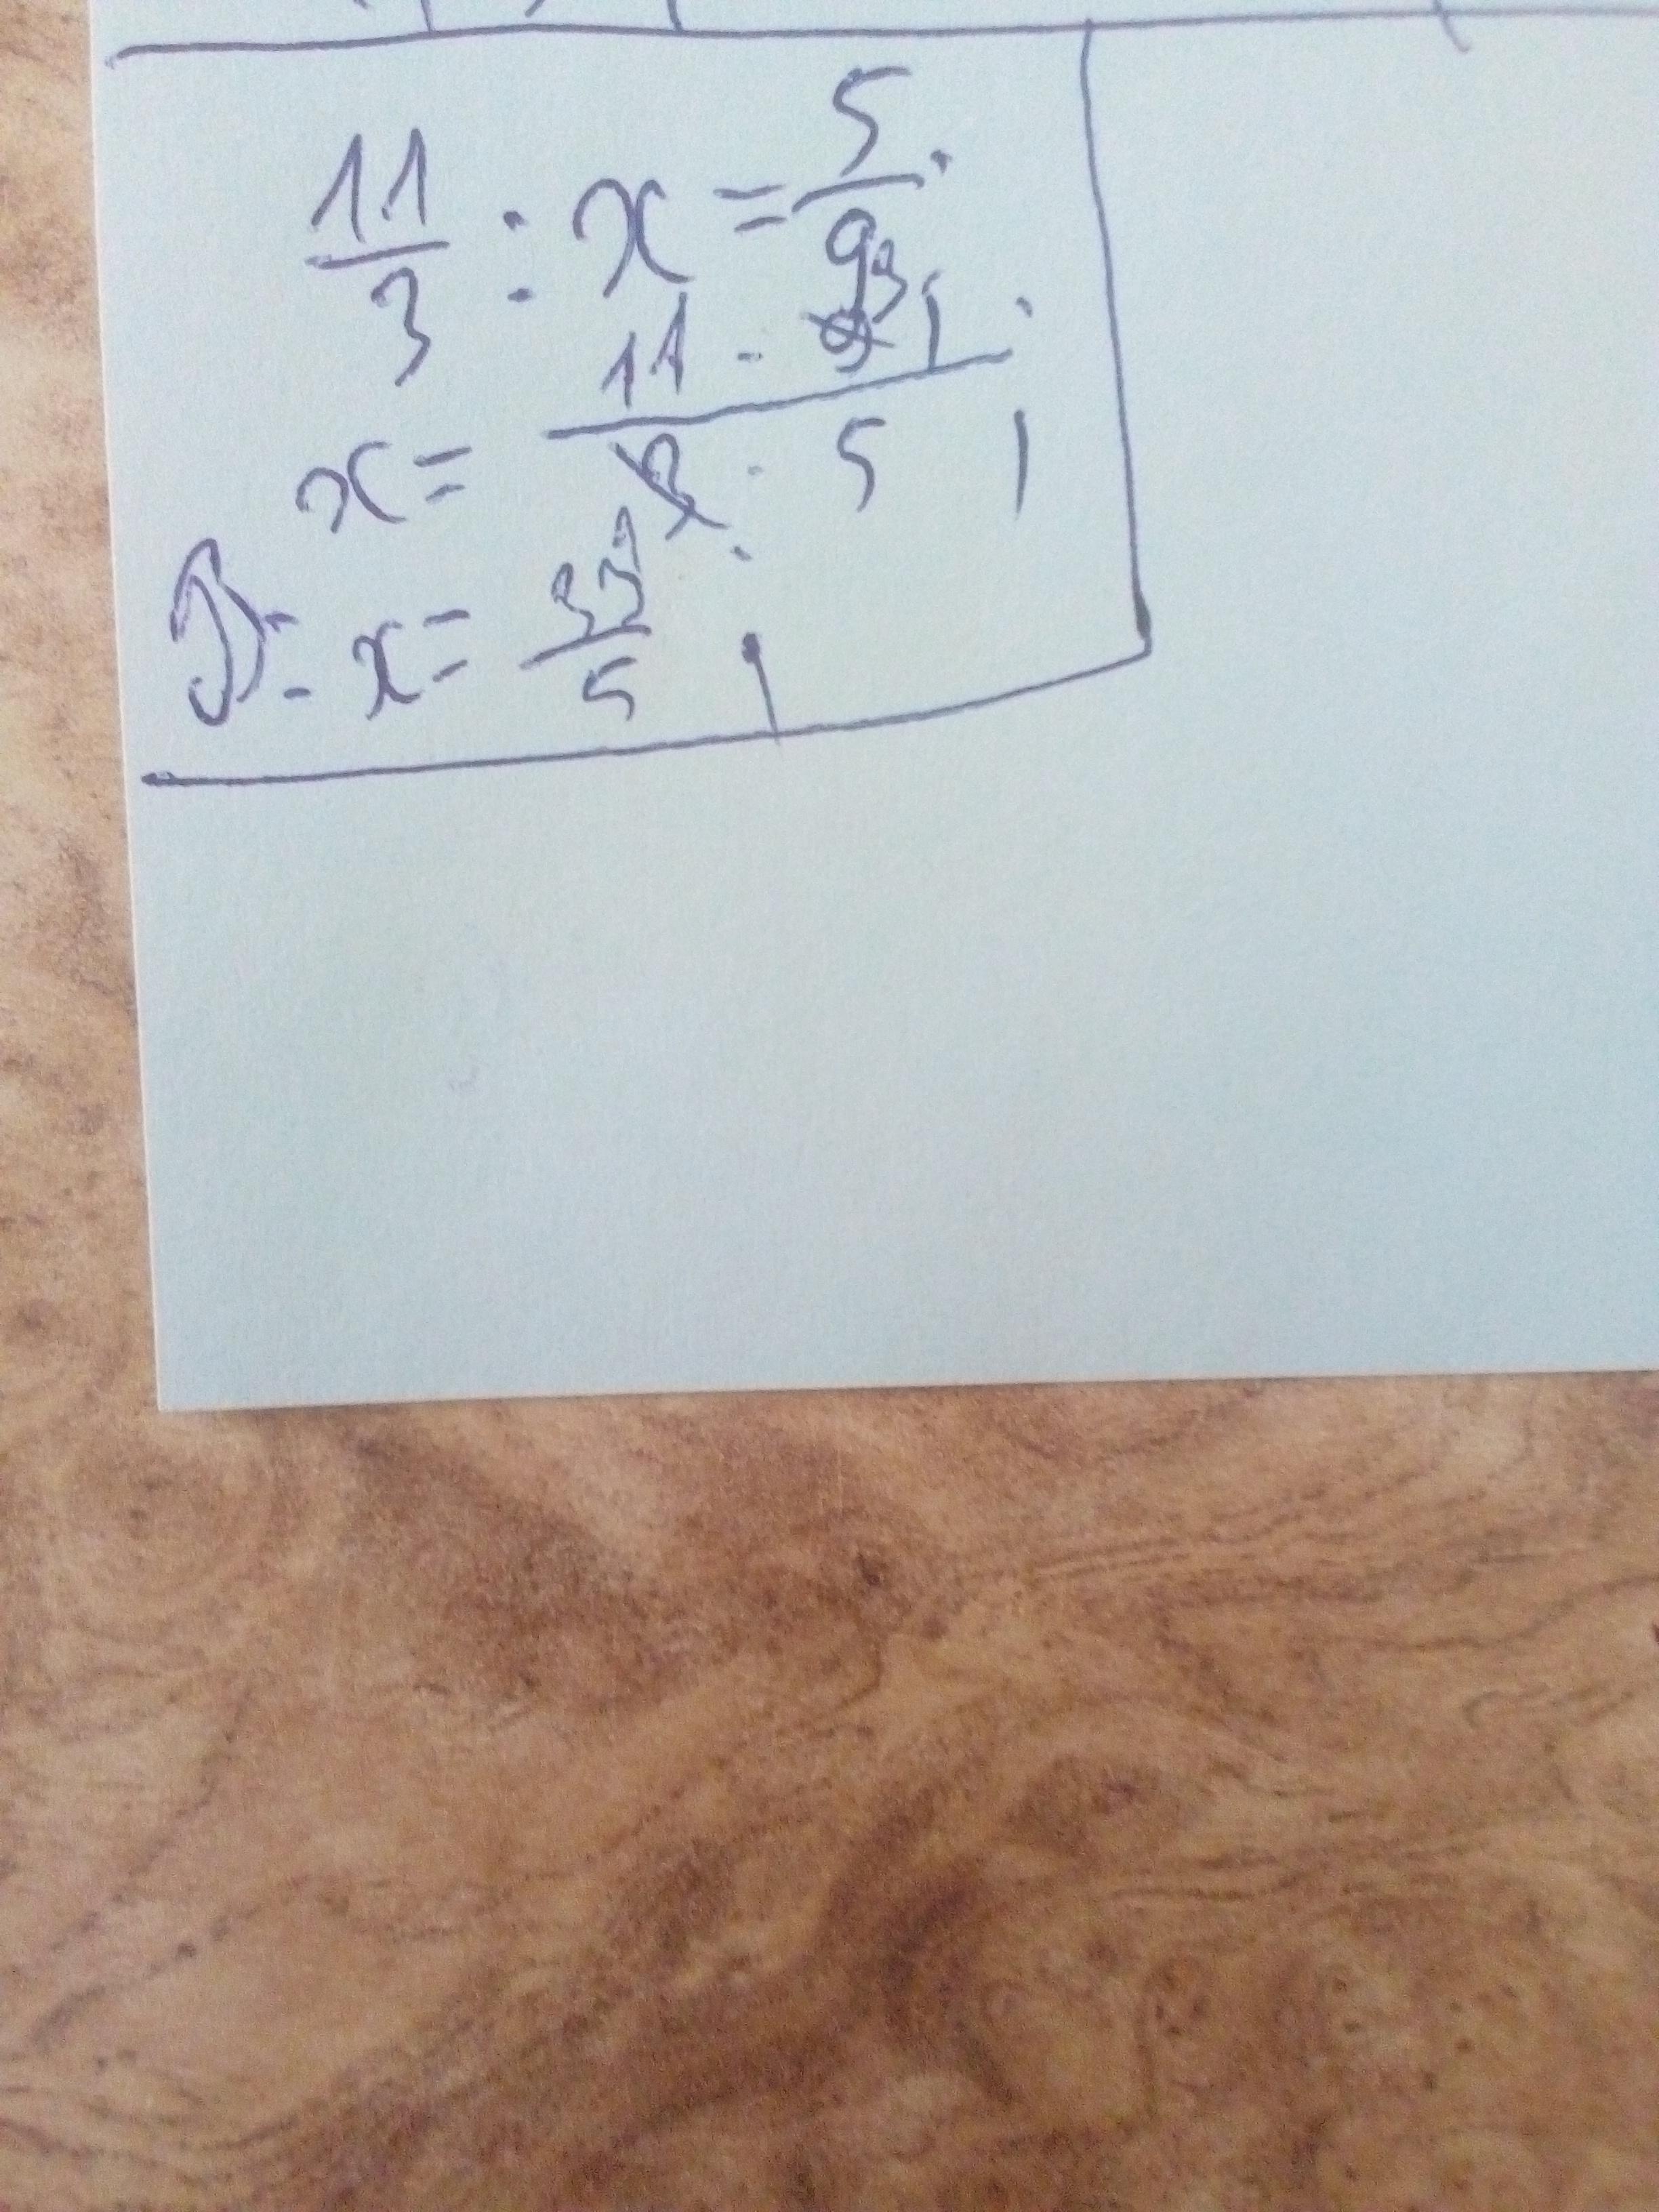 11/3 : x = 5/9.
x = 11 · 9 / 3 · 5
x = 33/5